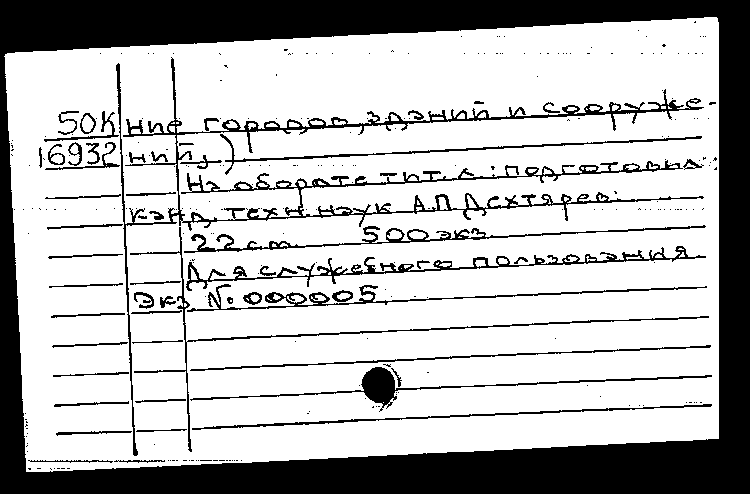 50К ние городов, зданий и сооруже-
16932 ний,)
На обороте тит. л.: подготовил:
канд. техн. наук А.П. Дехтярев.
22 см. 500 экз.
Для служебного пользования
Экз. №: 000005.